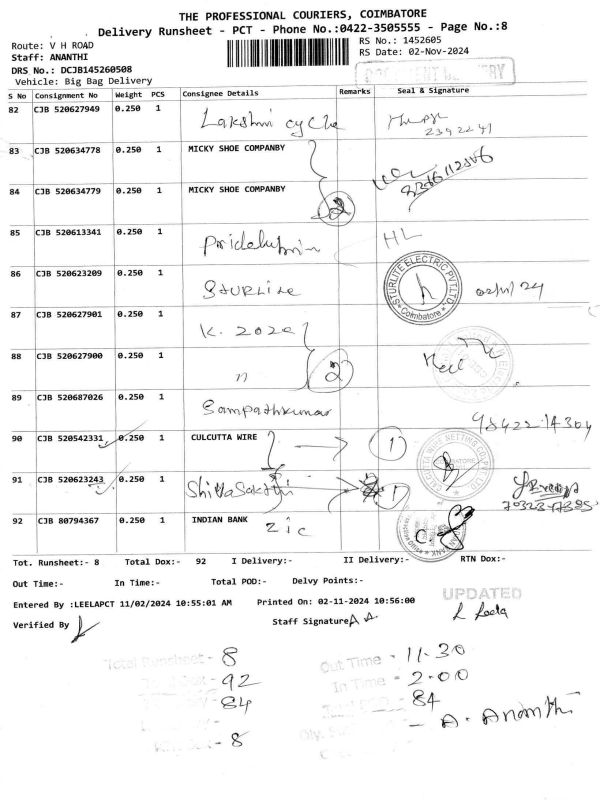 THE PROFESSIONAL COURIERS, COIMBATORE
Delivery Runsheet - PCT - Phone No.:0422-3505555 - Page No.:8
Route: V H ROAD
RS No.: 1452605
Staff: ANANTHI
RS Date: 02-Nov-2024
DRS No.: DCJB145260508
Vehicle: Big Bag Delivery
S No Consignment No Weight PCS Consignee Details Remarks Seal & Signature
82 CJB 520627949 0.250 1 Lakshmi cycle
83 CJB 520634778 0.250 1 MICKY SHOE COMPANBY
84 CJB 520634779 0.250 1 MICKY SHOE COMPANBY
2
85 CJB 520613341 0.250 1 HL
86 CJB 520623209 0.250 1 STURLITE STURLITE ELECTRIC PVT LTD Coimbatore 02/11/24
87 CJB 520627901 0.250 1 K. zone
88 CJB 520627900 0.250 1 " 2
89 CJB 520687026 0.250 1 Sampathkumar
98422 14304
90 CJB 520542331 0.250 1 CULCUTTA WIRE 1
91 CJB 520623243 0.250 1 1
92 CJB 80794367 0.250 1 INDIAN BANK
Tot. Runsheet:- 8 Total Dox:- 92 I Delivery:- II Delivery:- RTN Dox:-
Out Time:- In Time:- Total POD:- Delvy Points:-
Entered By :LEELAPCT 11/02/2024 10:55:01 AM Printed On: 02-11-2024 10:56:00
UPDATED
Verified By
Staff Signature
Total Runsheet - 8
Out Time - 11.30
92
In Time - 2.00
84
84
A. Ananthi
8